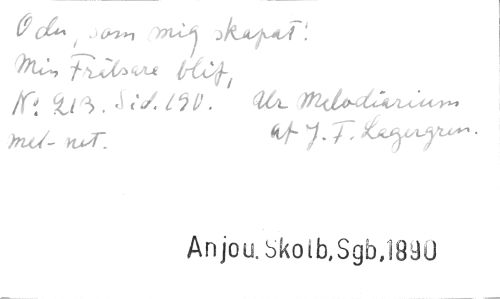 O du, som mig skapat!
Min Frälsare blif,
No: 213. Sid. 190. Ur Melodiarium
met-not. af J. F. Lagergren.
Anjou. Skolb, Sgb, 1890